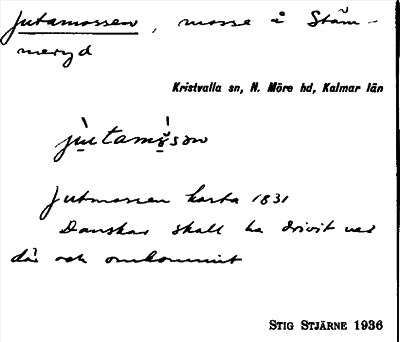 Jutamossen, mosse i Stäm-
meryd
Kristvalla sn, N. Möre hd, Kalmar län
Jutmossen karta 1831
Danskar skall ha drivit ned
där och omkommit
STIG STJÄRNE 1936